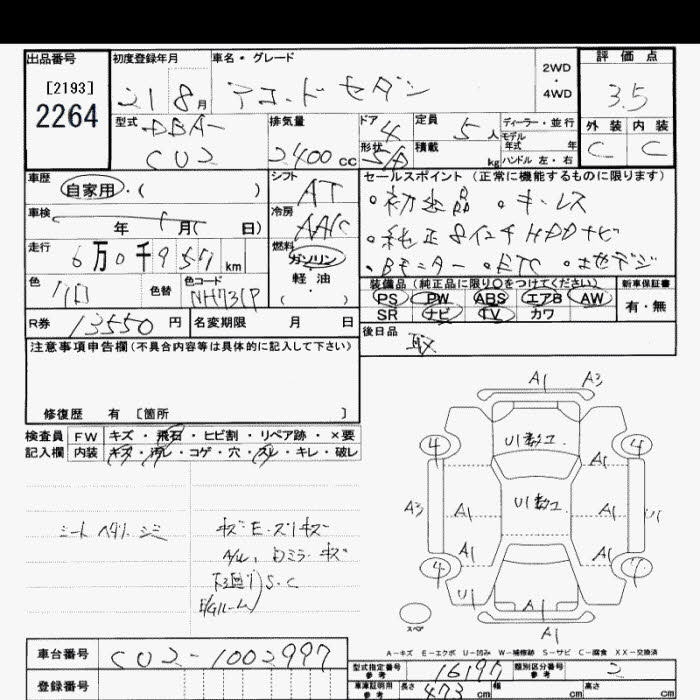 出品番号
[2193]
2264
初度登録年月
21 8月
車名・グレード
アコードセダン
2WD
・
4WD
評価点
3.5
外装 内装
C C
型式
DBA-
CU2
排気量
2400cc
ドア 4
形状 5A
定員 5人
積載 kg
ディーラー・並行
モデル年式 年
ハンドル 左・右
車歴
自家用・( )
シフト
AT
車検
年 月( 日)
冷房
AAC
走行
6万0千957km
燃料
ガソリン
軽油
( )
色
クロ
色替
色コード
NH731P
R券 13550円
名変期限 月 日
セールスポイント (正常に機能するものに限ります)
・キーレス
・純正8インチHDDナビ
・Bモニター ・ETC
装備品(純正品に限り○をつけてください)
PS PW ABS エアB AW
SR ナビ TV カワ
新車保証書
有・無
後日品
取
注意事項申告欄(不具合内容等は具体的に記入して下さい)
修復歴 有 〔箇所 〕
検査員 FW キズ・飛石・ヒビ割・リペア跡・×要
記入欄 内装 キズ・汚レ・コゲ・穴・スレ・キレ・破レ
シート ヘタリ、シミ
キズE・スリキズ
A/W、Dミラーキズ
下廻り S.C
E/Gルーム
A1 A3
U1数コ
4 4
A1
A3 A1 U1数コ A1 U1
A1 A1
4 4
U1 A1
A1
スペア
A－キズ E－エクボ U－凹み W－補修跡 S－サビ C－腐食 XX－交換済
車台番号
CU2-1002997
登録番号
型式指定番号
参考
16197
類別区分番号
参考
2
車庫証明用
参考
長さ 473cm 幅 cm 高さ cm